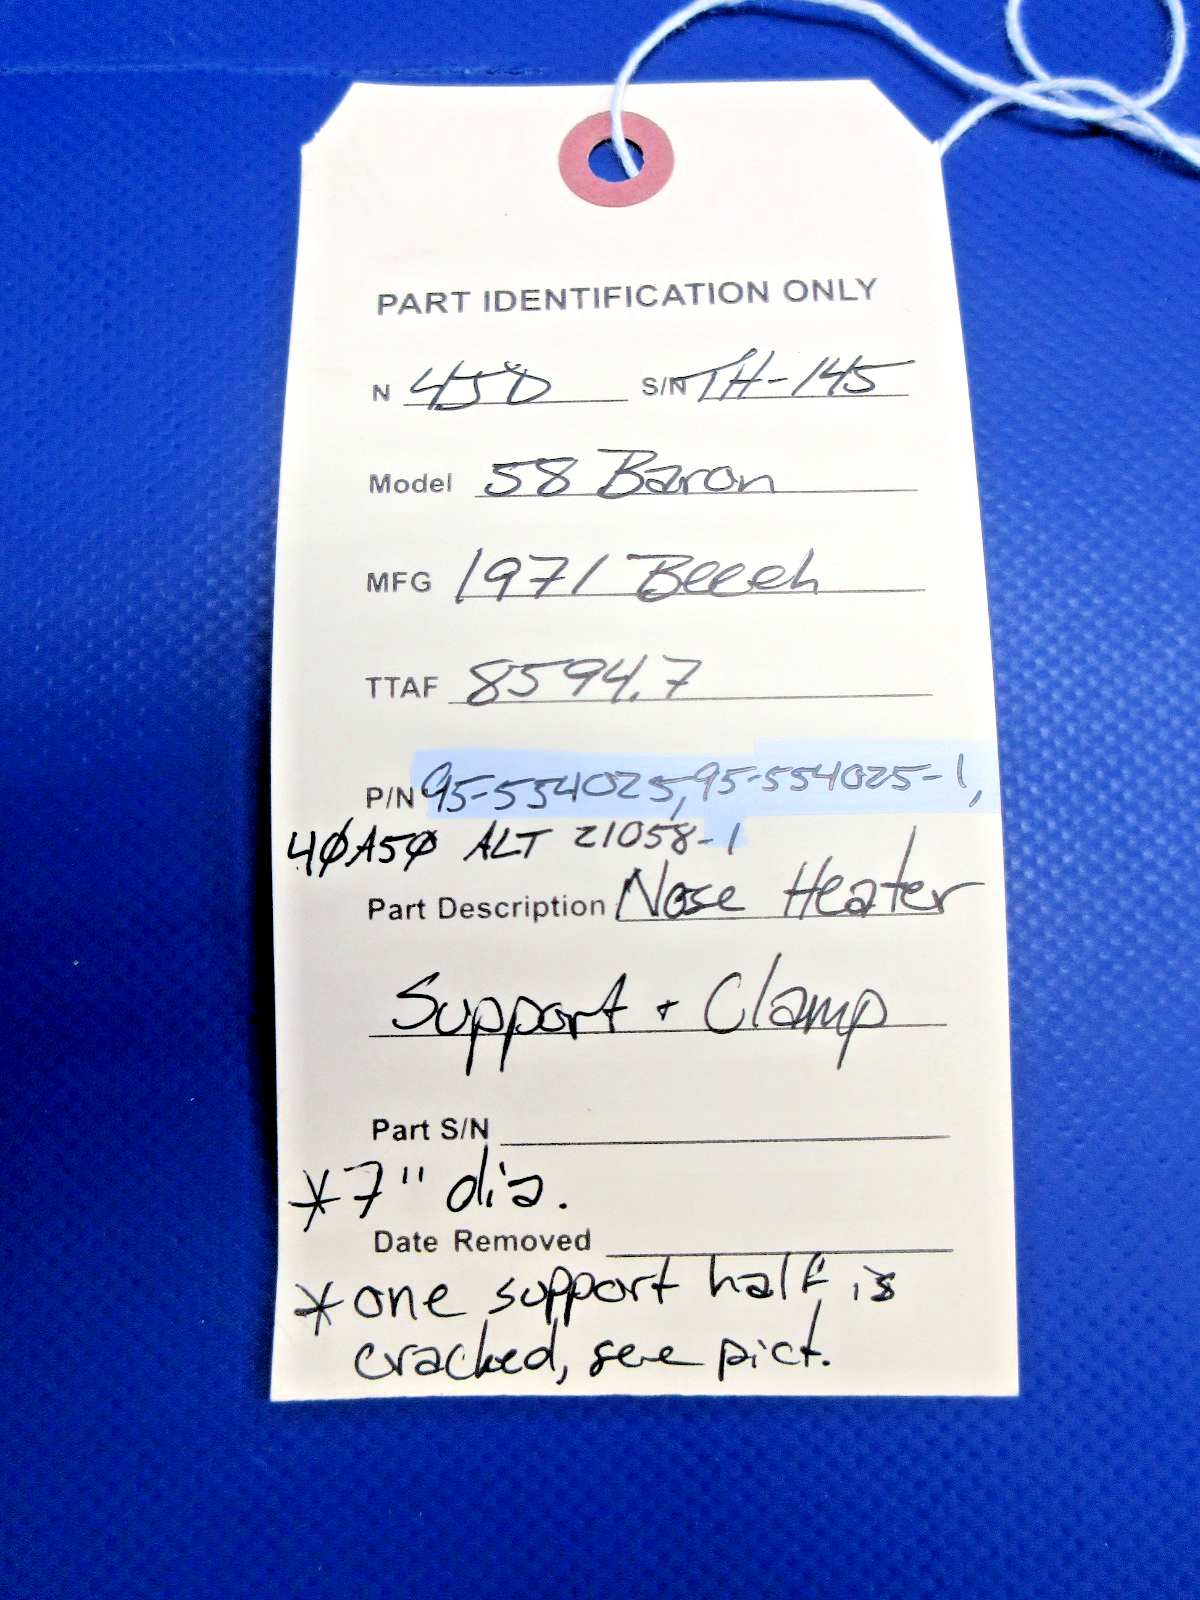 PART IDENTIFICATION ONLY
N 450 S/N TH-145
Model 58 Baron
MFG 1971 Beech
TTAF 8594.7
P/N 95-554025, 95-554025-1,
40A50 ALT 21058-1
Part Description Nose Heater
Support + Clamp
Part S/N
*7" dia.
Date Removed
*one support half is
cracked, see pict.